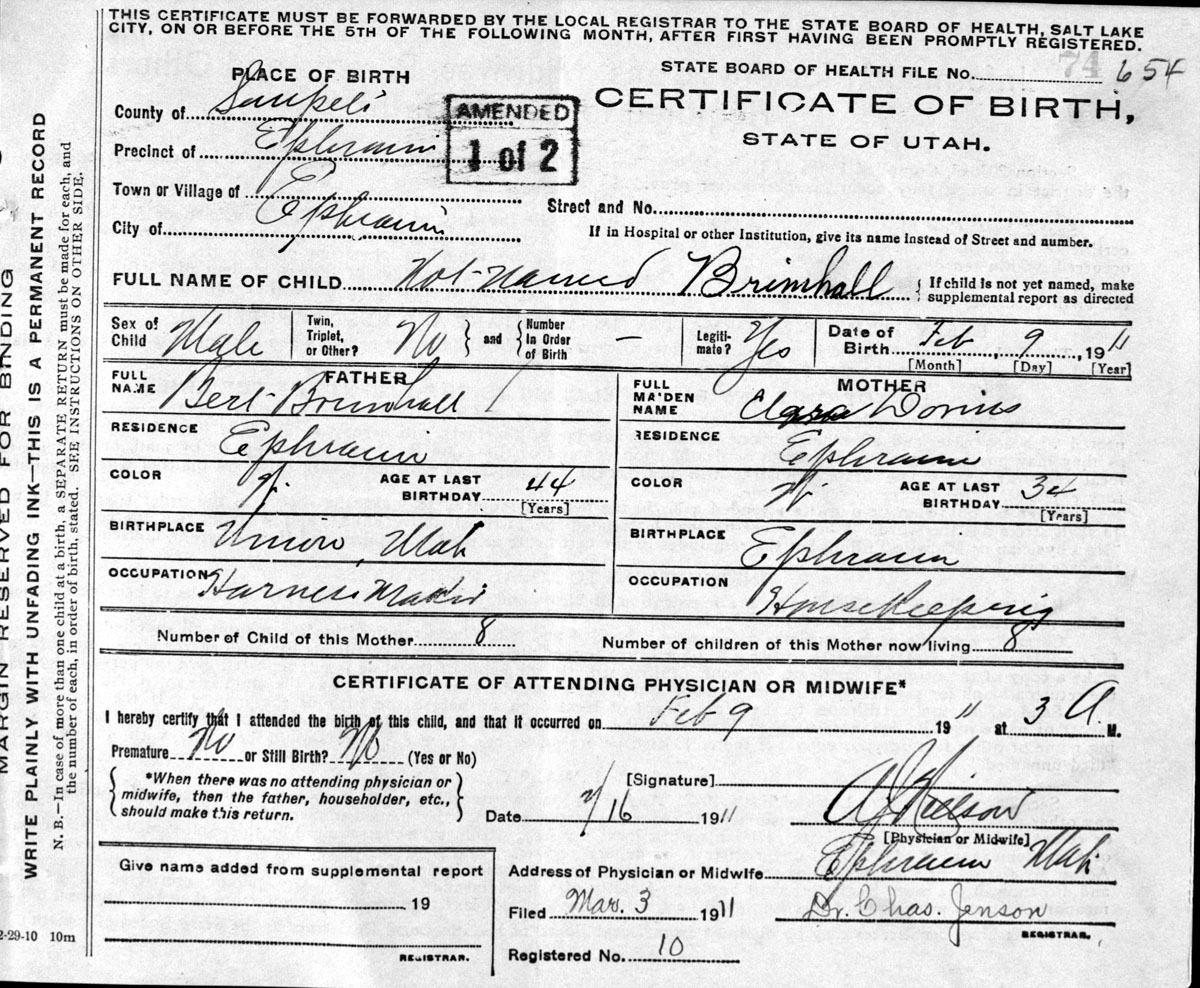 THIS CERTIFICATE MUST BE FORWARDED BY THE LOCAL REGISTRAR TO THE STATE BOARD OF HEALTH, SALT LAKE
CITY, ON OR BEFORE THE 5TH OF THE FOLLOWING MONTH, AFTER FIRST HAVING BEEN PROMPTLY REGISTERED.
STATE BOARD OF HEALTH FILE No. 74 654
PLACE OF BIRTH
CERTIFICATE OF BIRTH,
STATE OF UTAH.
AMENDED
1 of 2
County of Sanpete
Precinct of Ephraim
Town or Village of Ephraim
City of
Street and No.
If in Hospital or other Institution, give its name instead of Street and number.
FULL NAME OF CHILD Not-named Brimhall
If child is not yet named, make
supplemental report as directed
Sex of Child Male
Twin, Triplet, or Other? No and Number In Order of Birth –
Legitimate? Yes
Date of Birth Feb, 9, 1911
[Month] [Day] [Year]
FATHER
FULL NAME Bert Brimhall
RESIDENCE Ephraim
COLOR W.
AGE AT LAST BIRTHDAY 44
[Years]
BIRTHPLACE Union Utah
OCCUPATION Harness Maker
MOTHER
FULL MAIDEN NAME Clara Dorius
RESIDENCE Ephraim
COLOR W.
AGE AT LAST BIRTHDAY 34
[Years]
BIRTHPLACE Ephraim
OCCUPATION Housekeeping
Number of Child of this Mother 8
Number of children of this Mother now living 8
CERTIFICATE OF ATTENDING PHYSICIAN OR MIDWIFE*
I hereby certify that I attended the birth of this child, and that it occurred on Feb 9 1911 at 3 A. M.
Premature No or Still Birth? No (Yes or No)
*When there was no attending physician or
midwife, then the father, householder, etc.,
should make this return.
[Signature] Nielson
[Physician or Midwife]
Date 2/16 1911
Address of Physician or Midwife Ephraim Utah
Give name added from supplemental report
19
REGISTRAR.
Filed Mar. 3 1911 Dr. Chas. Jenson
REGISTRAR.
Registered No. 10
2-29-10 10m
MARGIN RESERVED FOR BINDING
WRITE PLAINLY WITH UNFADING INK—THIS IS A PERMANENT RECORD
N. B.—In case of more than one child at a birth, a SEPARATE RETURN must be made for each, and
the number of each, in order of birth, stated. SEE INSTRUCTIONS ON OTHER SIDE.